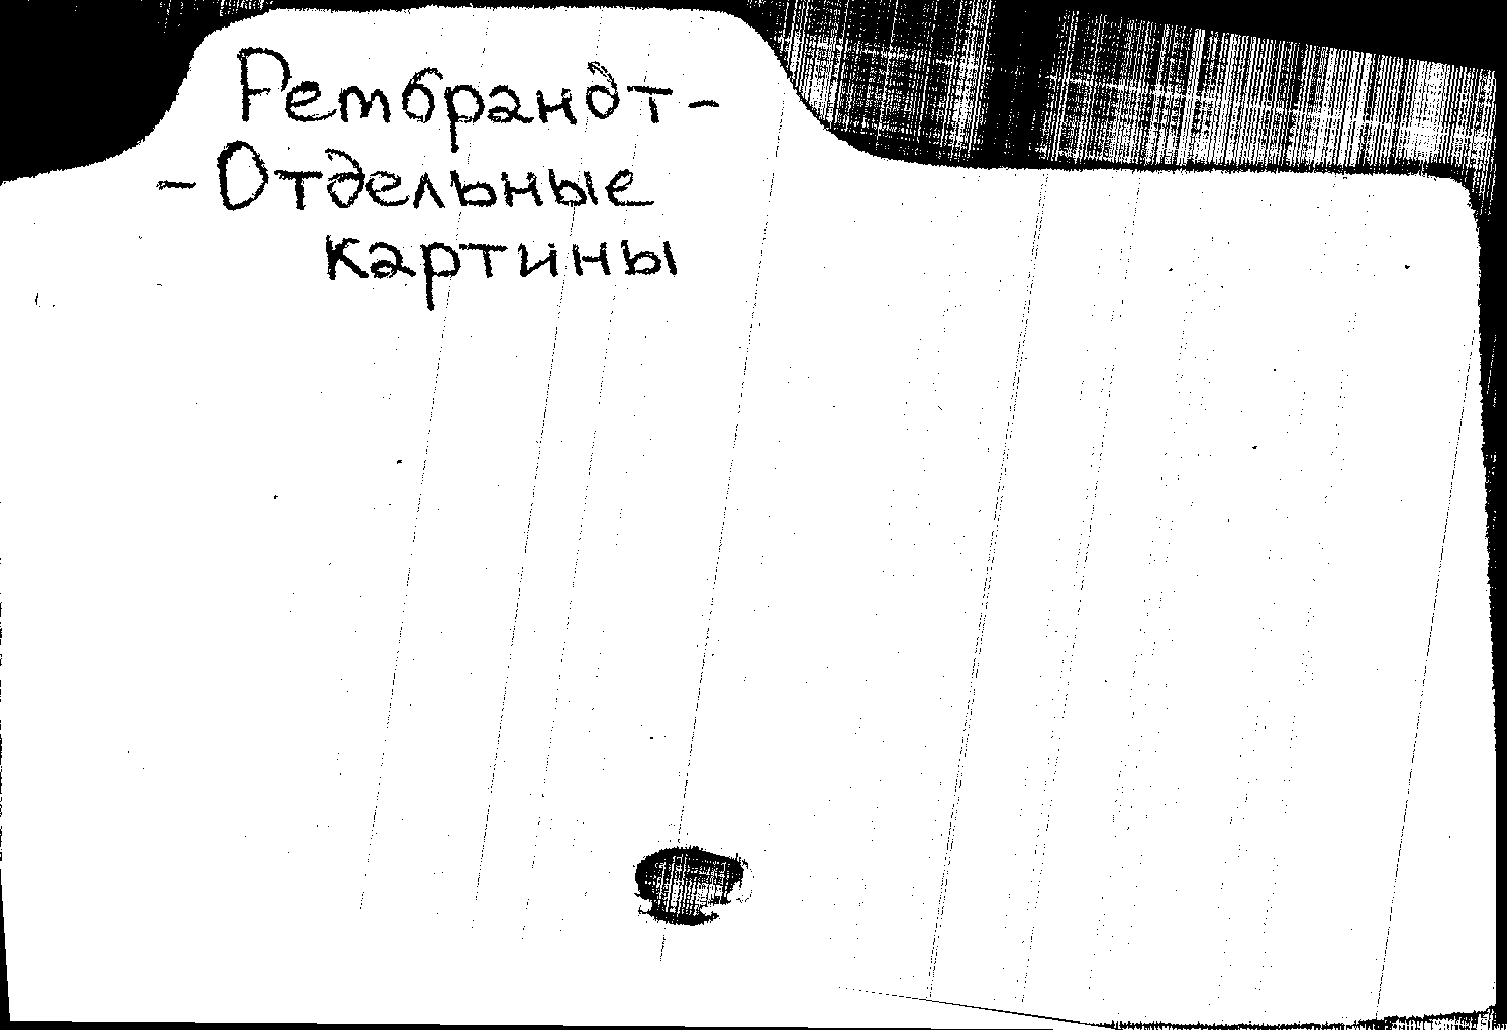 Рембрандт-
-Отдельные
картины